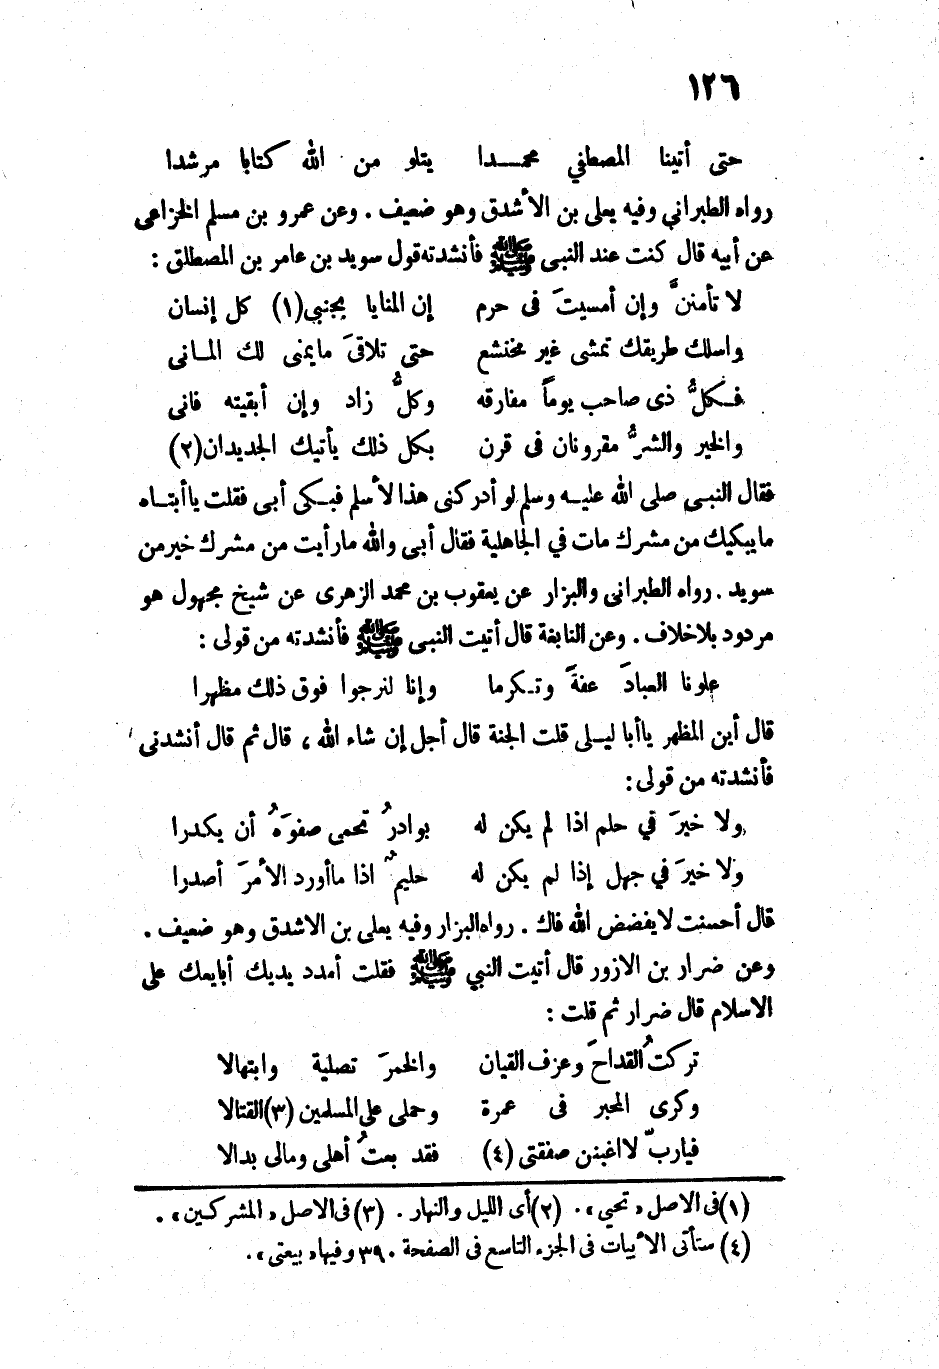 ١٢٦
حتى أتينا المصطفي محمـــدا يتلو من الله كتابا مرشدا
رواه الطبراني وفيه يعلى بن الأشدق وهو ضعيف . وعن عمرو بن مسلم الخزاعى
عن أبيه قال كنت عند النبى ﷺ فأنشدته قول سويد بن عامر بن المصطلق :
لا تأمننَّ وإن أمسيتَ فى حرم إن المنايا بجنبي(١) كل إنسان
واسلك طريقك تمشى غير مختشع حتى تلاقىَ مايمنى لك المـانى
فـكلُّ ذى صاحب يوماً مفارقه وكلُّ زاد وإن أبقيته فانى
والخير والشرُّ مقرونان فى قرن بكل ذلك يأتيك الجديدان(٢)
فقال النبـي صلى الله عليـه وسلم لو أدركنى هذا لأسلم فبـكى أبى فقلت ياأبتـاه
مايبكيك من مشرك مات في الجاهلية فقال أبى والله مارأيت من مشرك خير من
سويد . رواه الطبرانى والبزار عن يعقوب بن محمد الزهرى عن شيخ مجهول هو
مردود بلاخلاف . وعن النابغة قال أتيت النبى ﷺ فأنشدته من قولى :
علونا العبادَ عفةً وتـكرما وإنا لنرجوا فوق ذلك مظهرا
قال أين المظهر ياأبا ليـلى قلت الجنة قال أجل إن شاء الله ، قال ثم قال أنشدنى
فأنشدته من قولى :
ولا خيرَ في حلم اذا لم يكن له بوادرُ تحمى صفوَهُ أن يكدرا
ولا خيرَ في جهل إذا لم يكن له حليمٌ اذا ماأورد الأمرَ أصدرا
قال أحسنت لايفضض الله فاك . رواه البزار وفيه يعلى بن الاشدق وهو ضعيف .
وعن ضرار بن الازور قال أتيت النبي ﷺ فقلت أمدد يديك أبايعك على
الاسلام قال ضرار ثم قلت :
تركتُ القداحَ وعزف القيان والخمرَ تصلية وابتهالا
وكرى المحبر فى عمرة وحملى على المسلمين (٣) القتالا
فياربّ لااغبنن صفقتى (٤) فقد بعتُ أهلى ومالى بدالا
(١) فى الاصل « تحيى » . (٢) أى الليل والنهار . (٣) فى الاصل « المشركين » .
(٤) ستأتى الأبيات فى الجزء التاسع فى الصفحة ٣٩٠ وفيها « بيعتى » .